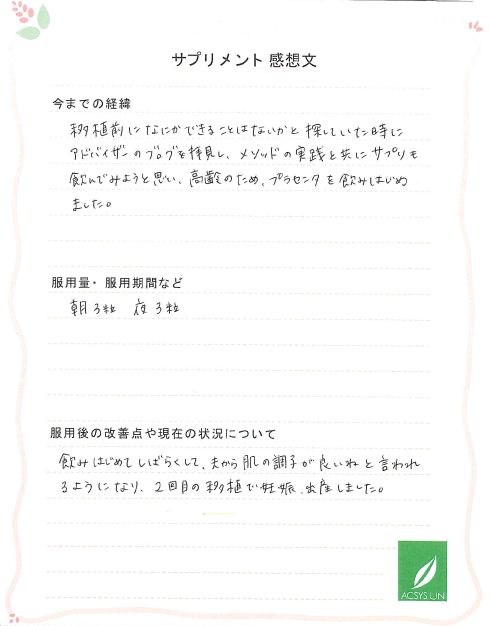 サプリメント 感想文
今までの経緯
移植前になにかできることはないかと探していた時に
アドバイザーのブログを拝見し、メソッドの実践と共にサプリも
飲んでみようと思い、高齢のため、プラセンタを飲みはじめ
ました。
服用量・服用期間など
朝3粒 夜3粒
服用後の改善点や現在の状況について
飲みはじめてしばらくして、夫から肌の調子が良いねと言われ
るようになり、2回目の移植で妊娠、出産しました。
ACSYS JIN